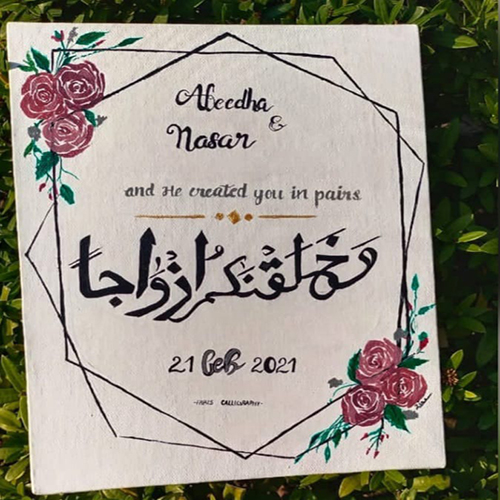 Afeedha
&
Nasar
and He created you in pairs
وخلقنكم ازواجا
21 Feb 2021
-FARIS CALLIGRAPHY-